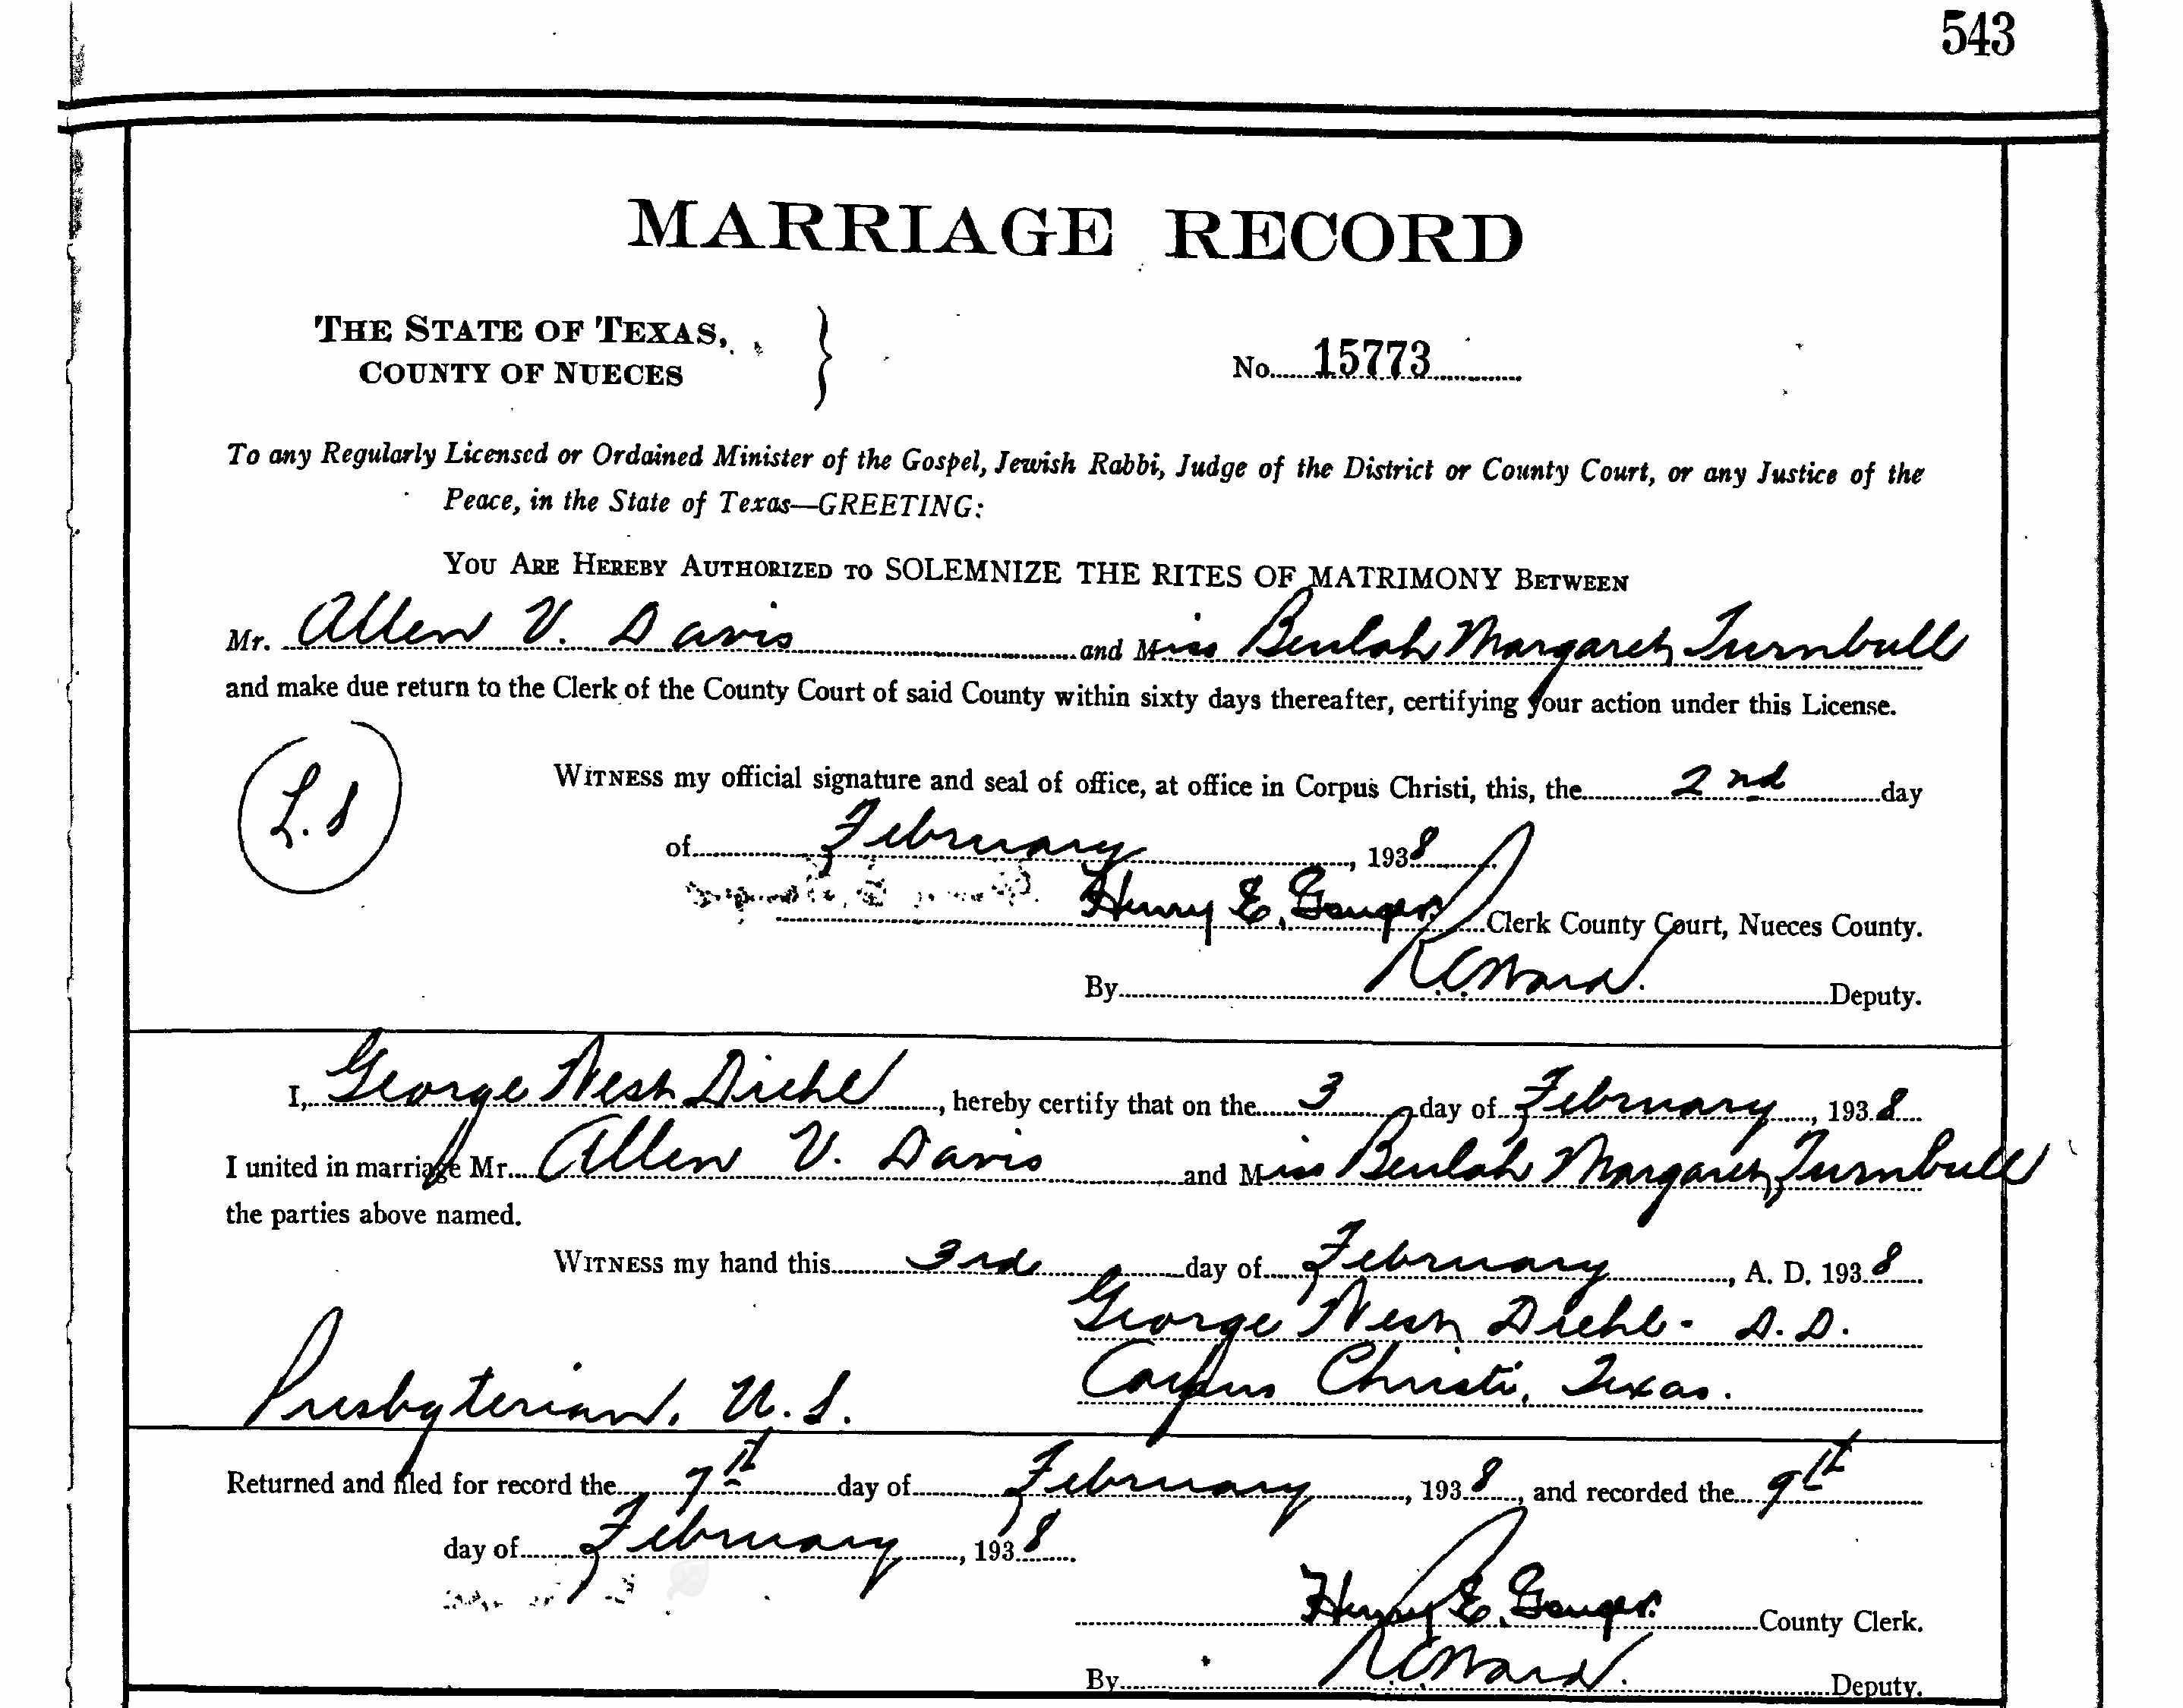 543
MARRIAGE RECORD
THE STATE OF TEXAS,
COUNTY OF NUECES
No. 15773
To any Regularly Licensed or Ordained Minister of the Gospel, Jewish Rabbi, Judge of the District or County Court, or any Justice of the
Peace, in the State of Texas—GREETING:
YOU ARE HEREBY AUTHORIZED TO SOLEMNIZE THE RITES OF MATRIMONY BETWEEN
Mr. Allen V. Davis and Miss Beulah Margaret Turnbull
and make due return to the Clerk of the County Court of said County within sixty days thereafter, certifying your action under this License.
L. S
WITNESS my official signature and seal of office, at office in Corpus Christi, this, the 2nd day
of February, 1938
Henry E. Clerk County Court, Nueces County.
By R.C. Ward. Deputy.
I, George West Diehl, hereby certify that on the 3 day of February, 1938
I united in marriage Mr. Allen V. Davis and Miss Beulah Margaret Turnbull
the parties above named.
WITNESS my hand this 3rd day of February, A. D. 1938
George West Diehl - D. D.
Corpus Christi, Texas.
Presbyterian, U. S.
Returned and filed for record the 7th day of February, 1938, and recorded the 9th
day of February, 1938.
Henry E. County Clerk.
By R.C. Ward. Deputy.